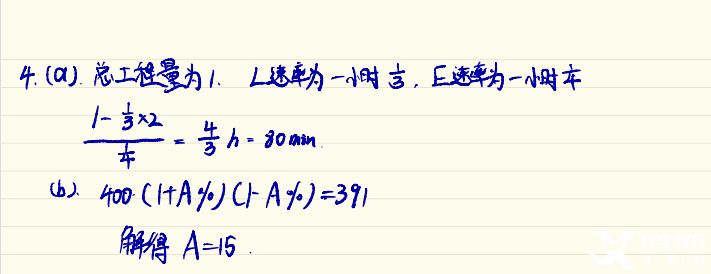 4.(a). 总工程量为1. L速率为一小时1/3, E速率为一小时1/4
(1-1/3×2)/(1/4) = 4/3 h = 80min.
(b). 400(1+A%)(1-A%)=391
解得 A=15.